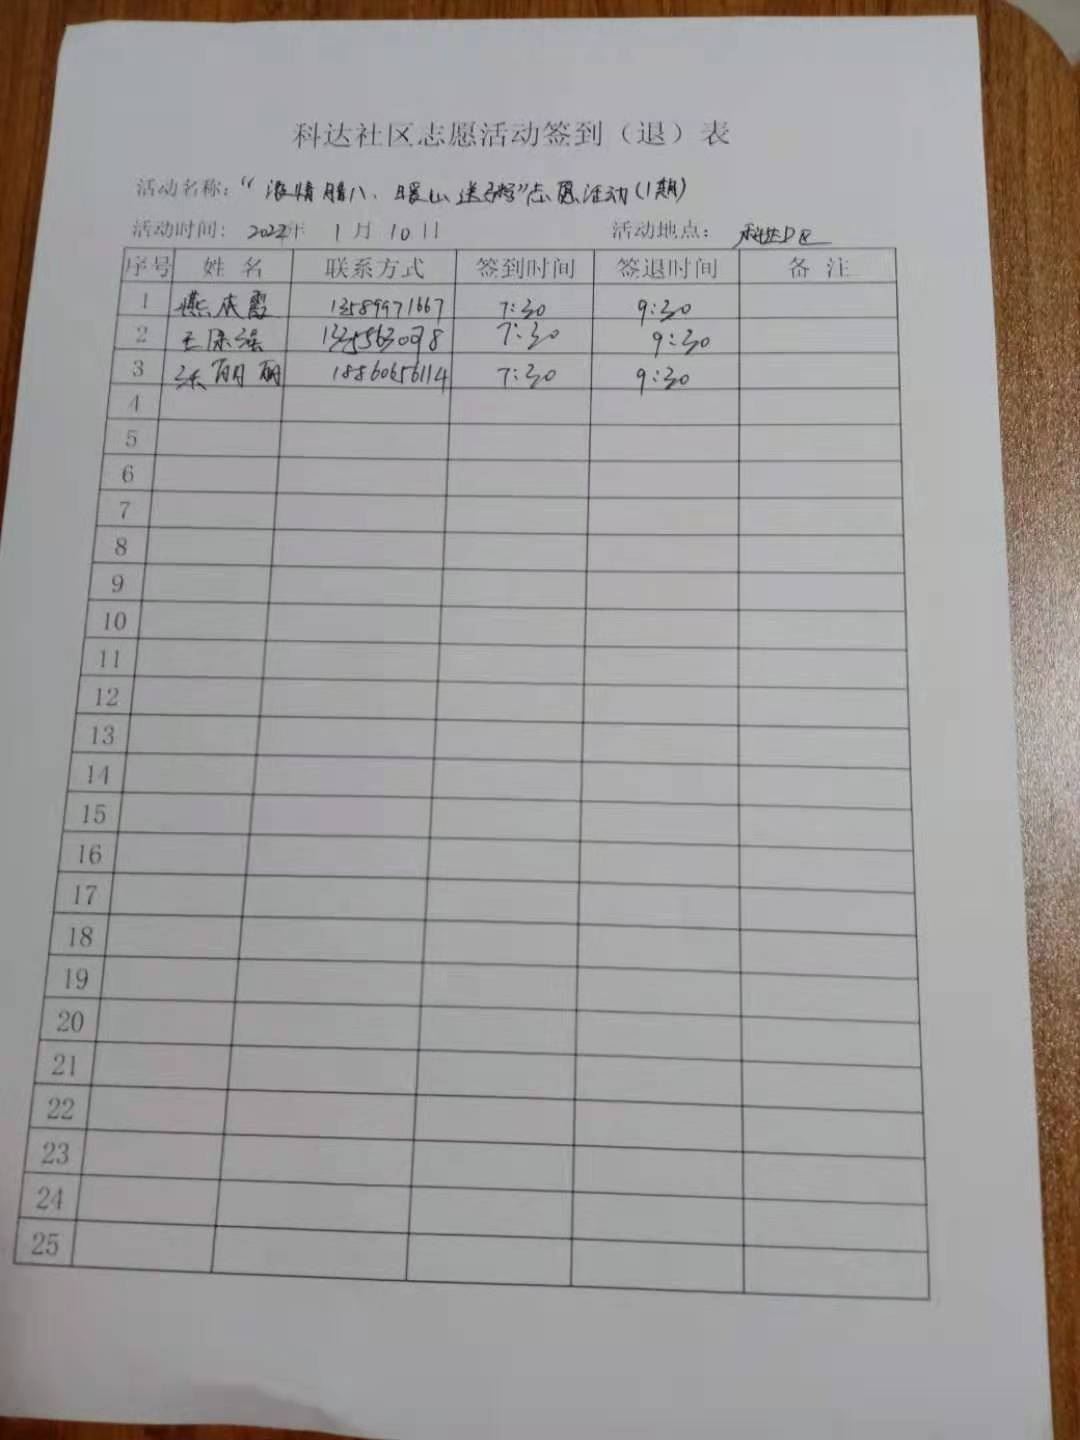 科达社区志愿活动签到（退）表
活动名称：“浓情腊八、暖心送粥”志愿活动（1期）
活动时间： 2022年 1月 10日 活动地点： 科达D区
序号 姓 名 联系方式 签到时间 签退时间 备 注
1 13589971667 7:30 9:30
2 7:30 9:30
3 丽丽 18860656114 7:30 9:30
4
5
6
7
8
9
10
11
12
13
14
15
16
17
18
19
20
21
22
23
24
25